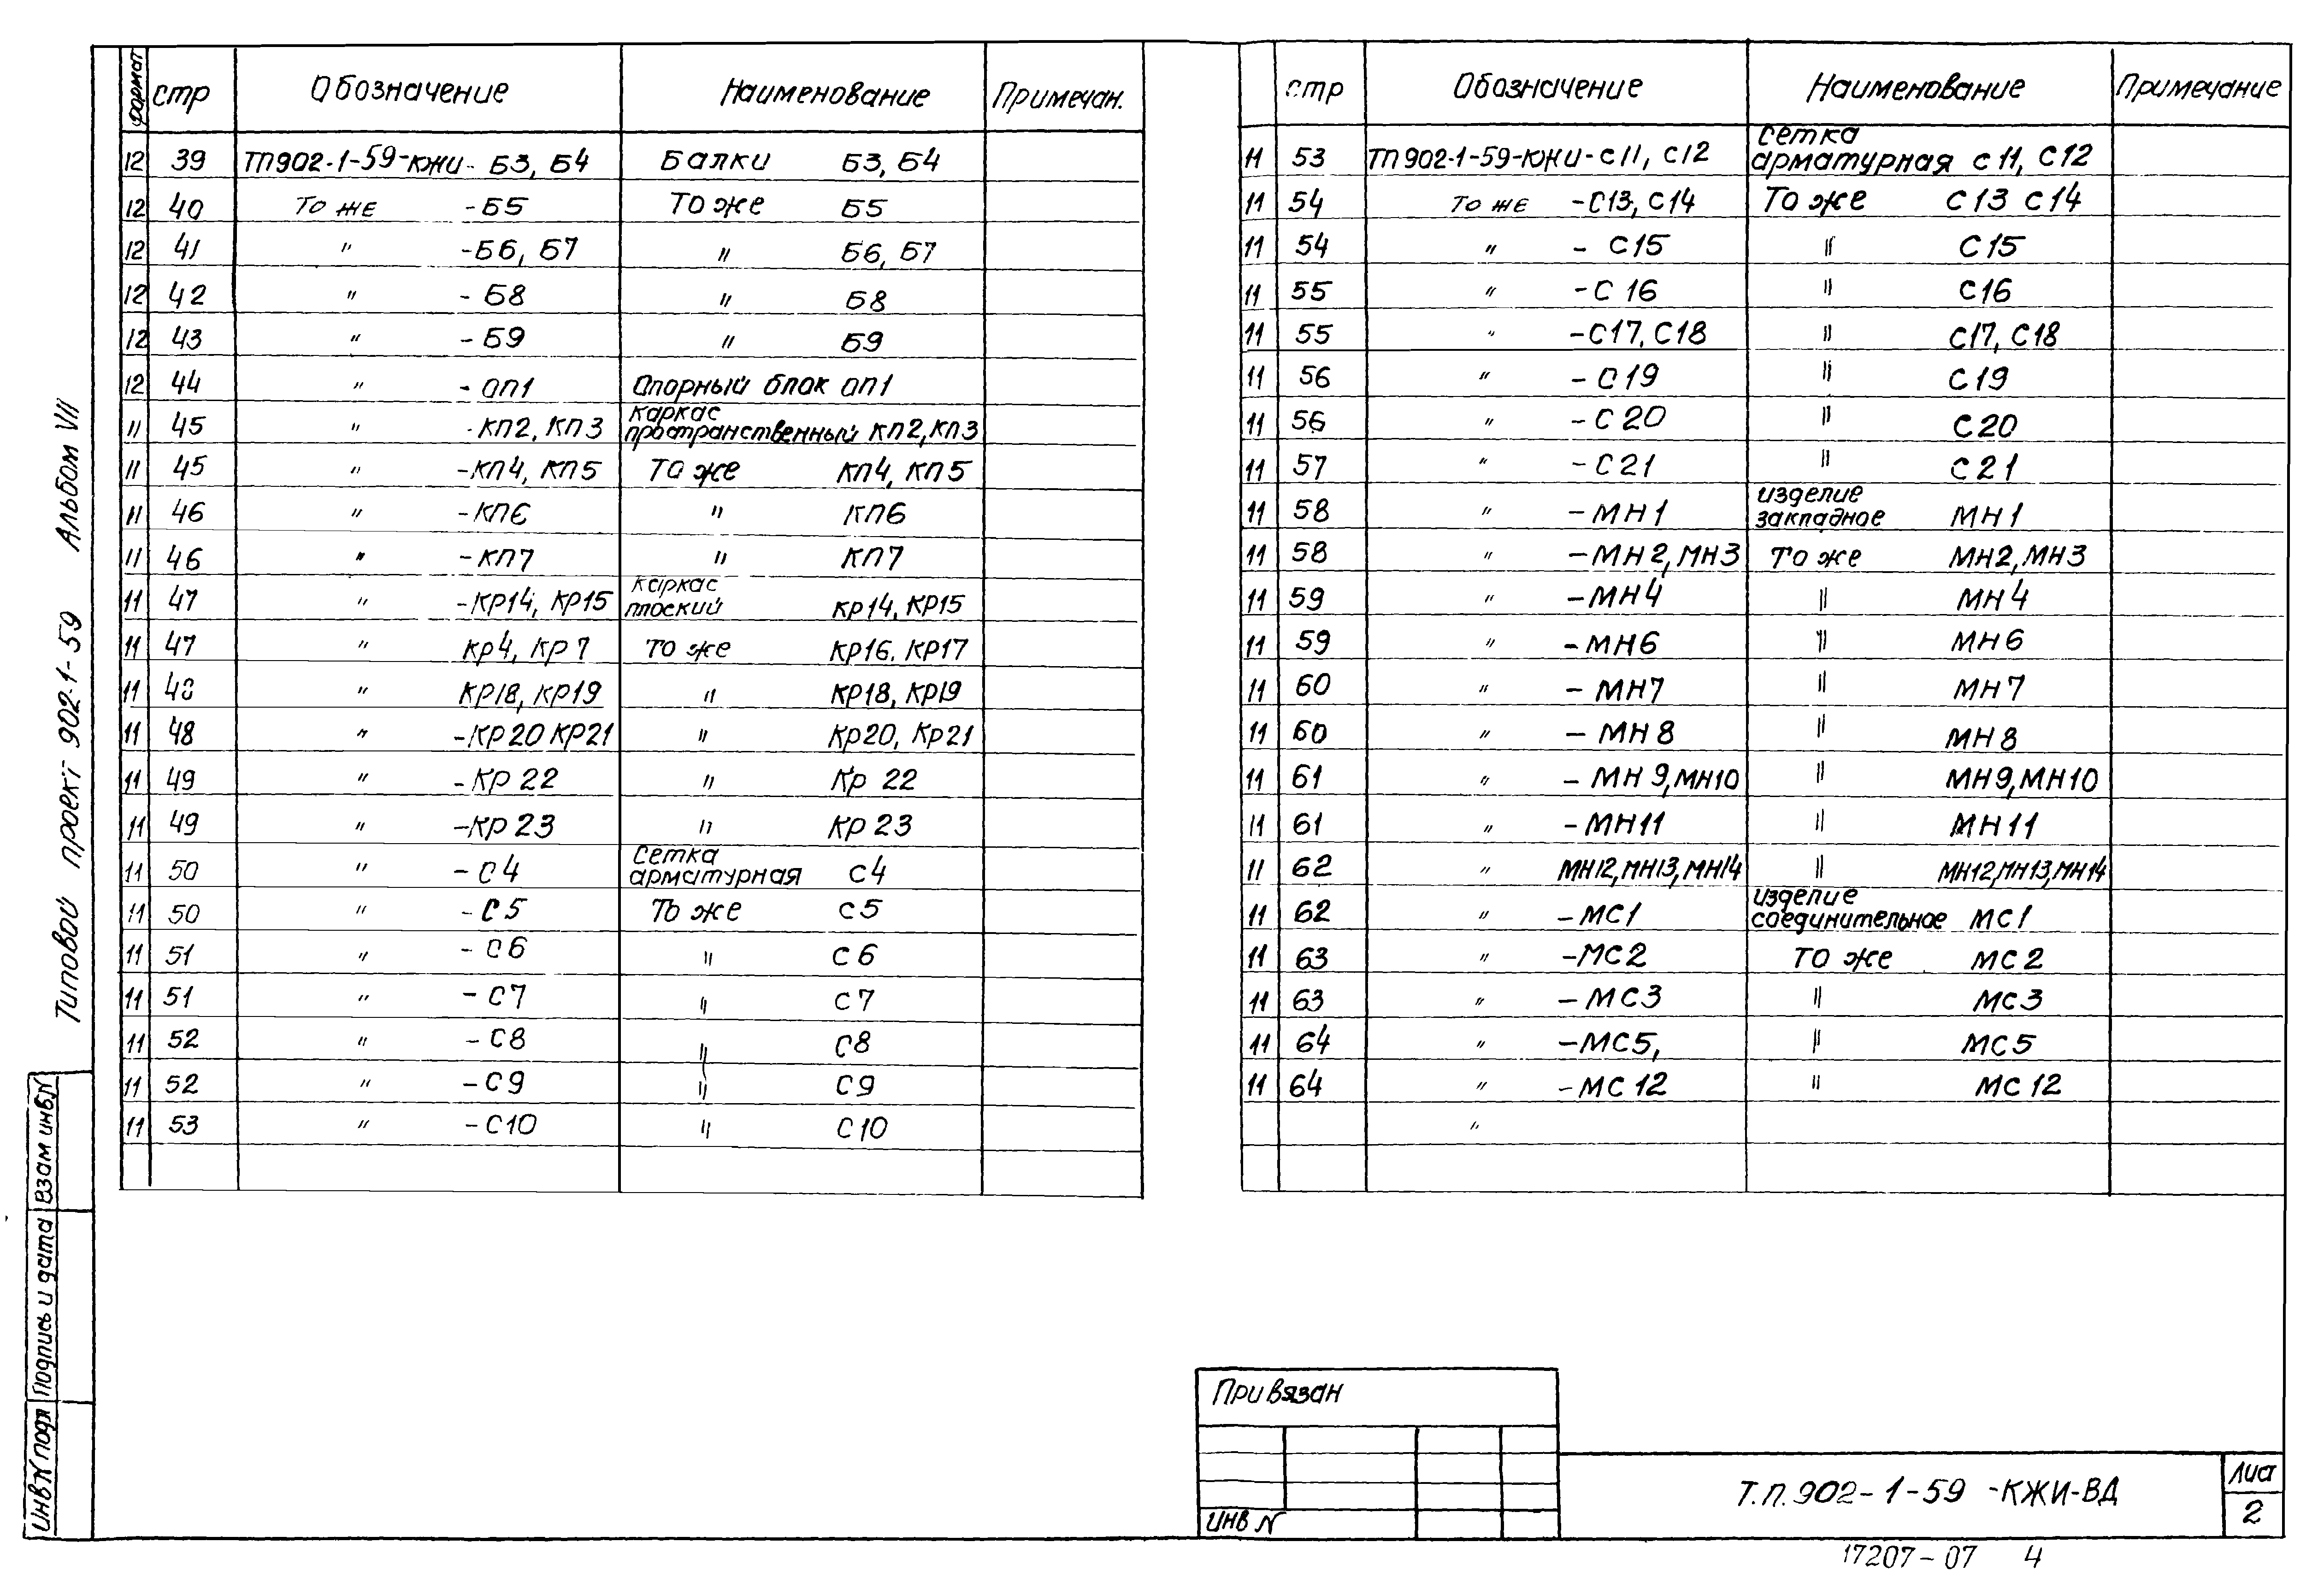 формат стр Обозначение Наименование Примечан.
12 39 ТП902-1-59-КЖИ- Б3, Б4 Балки Б3, Б4
12 40 То же -Б5 То же Б5
12 41 " -Б6, Б7 " Б6, Б7
12 42 " -Б8 " Б8
12 43 " -Б9 " Б9
12 44 " -ОП1 Опорный блок ОП1
11 45 " -КП2, КП3 каркас пространственный КП2, КП3
11 45 " -КП4, КП5 То же КП4, КП5
11 46 " -КП6 " КП6
11 46 " -КП7 " КП7
11 47 " -КР14, КР15 каркас плоский КР14, КР15
11 47 " КР4, КР7 То же КР16. КР17
11 48 " КР18, КР19 " КР18, КР19
11 48 " -КР20 КР21 " КР20, КР21
11 49 " -КР 22 " КР 22
11 49 " -КР 23 " КР 23
11 50 " -С4 Сетка арматурная С4
11 50 " -С5 То же С5
11 51 " -С6 " С6
11 51 " -С7 " С7
11 52 " -С8 " С8
11 52 " -С9 " С9
11 53 " -С10 " С10
стр Обозначение Наименование Примечание
11 53 ТП902-1-59-КЖИ-С11, С12 Сетка арматурная С11, С12
11 54 То же -С13, С14 То же С13 С14
11 54 " - С15 " С15
11 55 " -С 16 " С16
11 55 " -С17, С18 " С17, С18
11 56 " -С19 " С19
11 56 " -С 20 " С20
11 57 " -С21 " С21
11 58 " -МН1 изделие закладное МН1
11 58 " -МН2, МН3 То же МН2, МН3
11 59 " -МН4 " МН4
11 59 " -МН6 " МН6
11 60 " - МН7 " МН7
11 60 " - МН8 " МН8
11 61 " - МН9, МН10 " МН9, МН10
11 61 " -МН11 " МН11
11 62 " МН12, МН13, МН14 " МН12, МН13, МН14
11 62 " -МС1 изделие соединительное МС1
11 63 " -МС2 То же МС2
11 63 " -МС3 " МС3
11 64 " -МС5, " МС5
11 64 " -МС12 " МС12
"
Типовой проект 902-1-59 Альбом VII
ИНВ N подл Подпись и дата Взам инв.N
Привязан
ИНВ N
Т.П.902-1-59 -КЖИ-ВД
Лист
2
17207-07 4